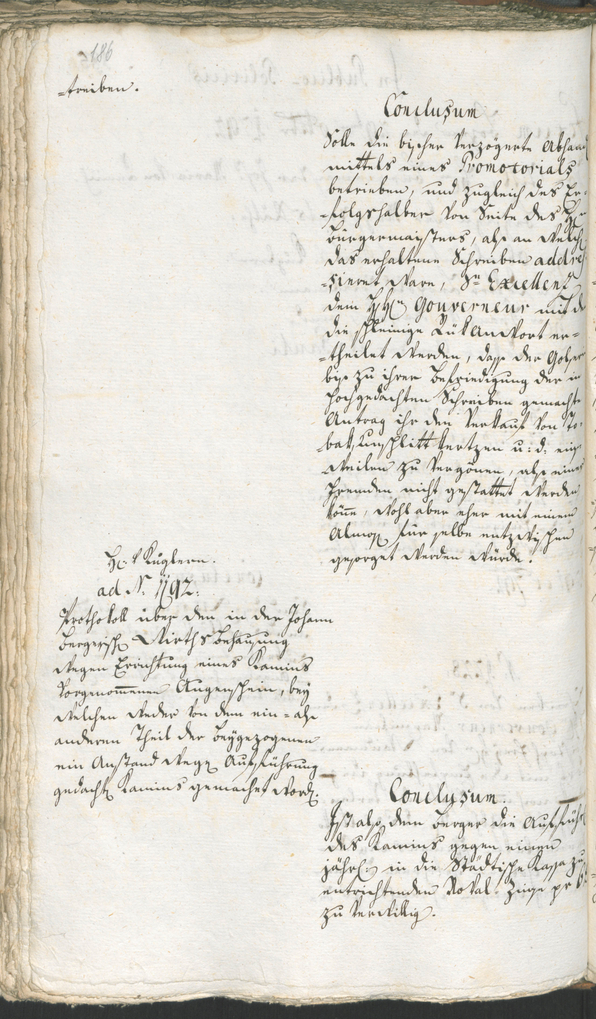 186
=treiben.
Conclusum
Solle die bischer verzögerte Abhand
mittels eines Promotorials
betrieben, und zugleich des Er-
=folgshalber von Seite des H:
Bürgermaisters, als an welch
das erhaltene Schreiben addres
=sieret ware, Sr Excellenz
dem H: Gouverneur mit
die schleinige Rükantwort er=
=theilet werden, dass der
bis zu ihrer Befriedigung der in
hochgedachten Schreiben gemacht
Antrag ihr den Verkauf von To-
bak, Unschlittkertzen u: d:
weilen zu vergönen, als einer
Fremden nicht gestattet werden
könne, wohl aber eher mit einem
Almos. für selbe entzwischen
gesorget werden würde.
H: v Kuglern.
ad N. 1192.
Prothokoll über den in der Johann
Bergerisch Wirths Behausung
wegen Errichtung eines Kamins
vorgenommenen Augenschein, bey
welchen weder von dem ein= als
anderen Theil der Beygezogenen
ein Anstand wege Aufführung
gedacht Kamins gemacht word:
Conclusum.
Ist also dem Berger die Aufführ
des Kamins gegen einen
jährl: in die Städtische Kassa zu
entrichtenden Rekol. Zinse pr
zu verwillig.